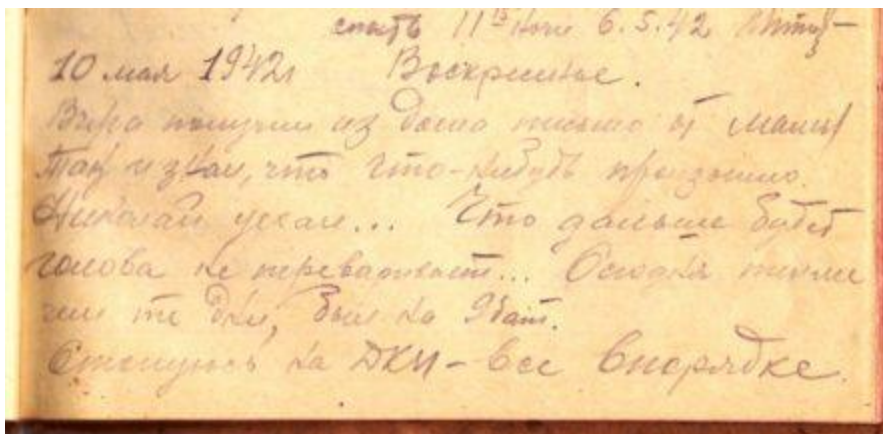 спать 11 15 ночи 6.5.42
10 мая 1942г Воскресенье.
Вчера получил из дома письмо от мамы
Так и знал, что что-нибудь произошло.
Николай уехал... Что дальше будет
голова не переваривает... Сегодня теплее
чем те дни, был на 9 бат.
на ДКП - все впорядке.